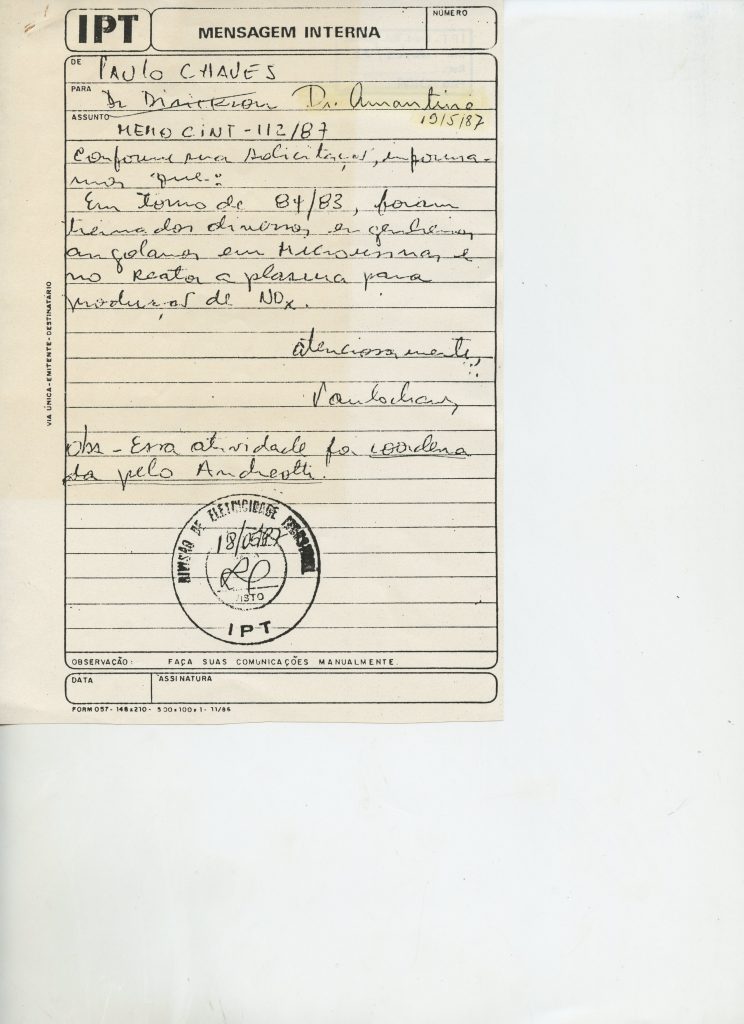 IPT MENSAGEM INTERNA NÚMERO
DE PAULO CHAVES
PARA Dr Dr. Amantino
19/5/87
ASSUNTO MEMO CINT - 112/87
Conforme sua solicitação, informa-
mos que:
Em torno de 84/83, foram
treinados diversos engenheiros
angolanos em Microusinas e
no Reator a plasma para
produção de NOx.
atenciosamente,
Paulo Chaves
Obs - Essa atividade foi coordena
da pelo Andreotti.
DIVISÃO DE ELETRICIDADE
18/05/87
VISTO
IPT
VIA ÚNICA-EMITENTE-DESTINATÁRIO
OBSERVAÇÃO: FAÇA SUAS COMUNICAÇÕES MANUALMENTE.
DATA ASSINATURA
FORM 057 - 148x210 - 500x100x1 - 11/86